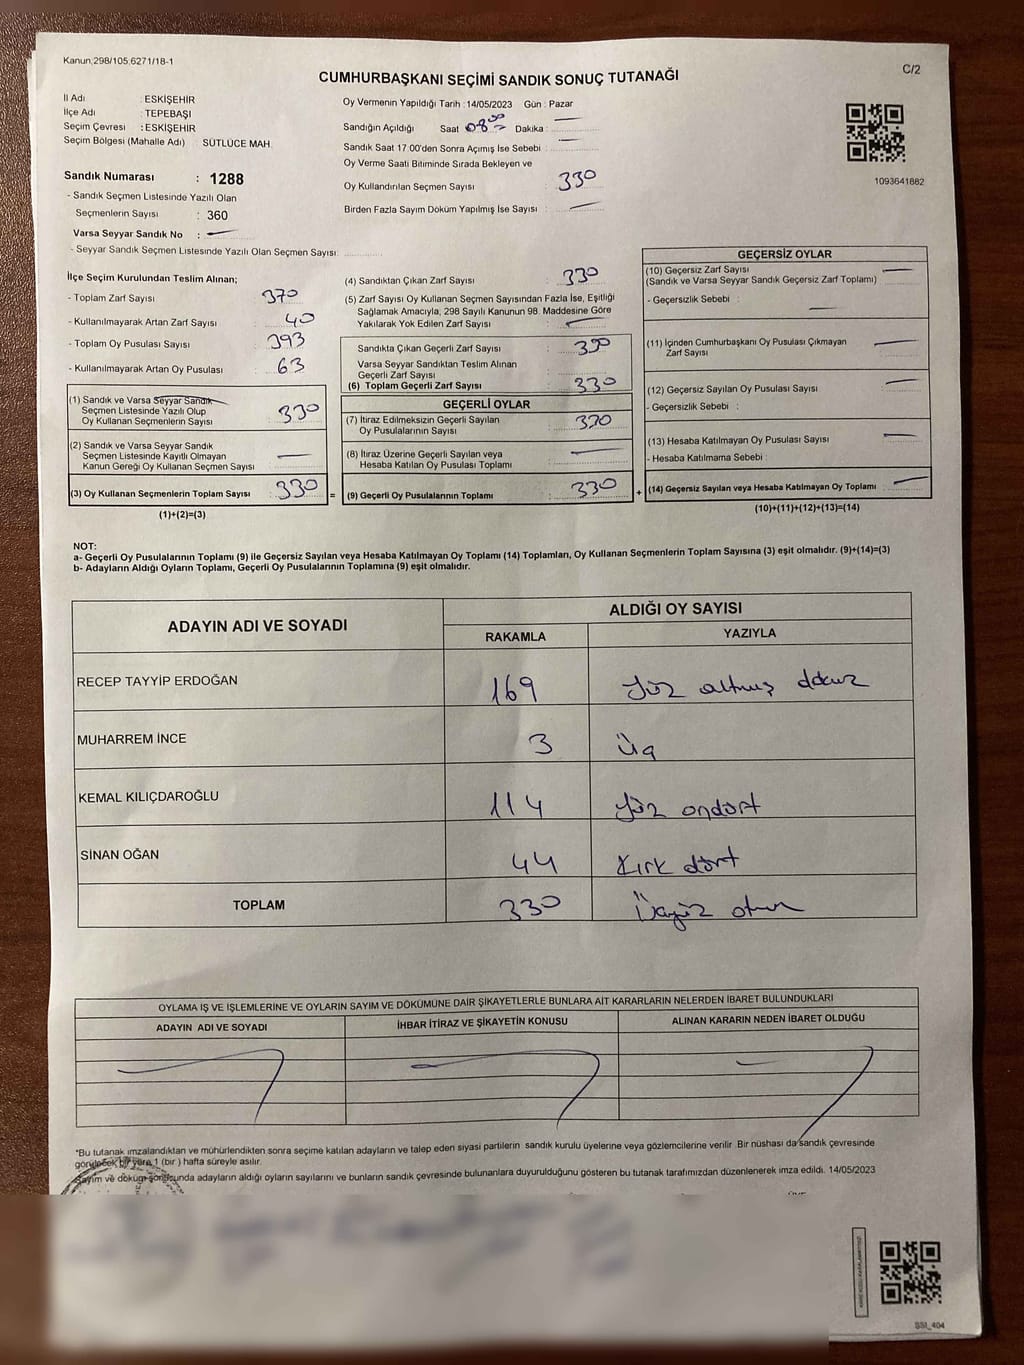 Kanun,298/105,6271/18-1
C/2
CUMHURBAŞKANI SEÇİMİ SANDIK SONUÇ TUTANAĞI
İl Adı : ESKİŞEHİR
İlçe Adı : TEPEBAŞI
Seçim Çevresi : ESKİŞEHİR
Seçim Bölgesi (Mahalle Adı) : SÜTLÜCE MAH.
Sandık Numarası : 1288
- Sandık Seçmen Listesinde Yazılı Olan
Seçmenlerin Sayısı : 360
Varsa Seyyar Sandık No : —
- Seyyar Sandık Seçmen Listesinde Yazılı Olan Seçmen Sayısı:
Oy Vermenin Yapıldığı Tarih : 14/05/2023 Gün : Pazar
Sandığın Açıldığı Saat 08:00 Dakika : —
Sandık Saat 17.00'den Sonra Açımış İse Sebebi : —
Oy Verme Saati Bitiminde Sırada Bekleyen ve
Oy Kullandırılan Seçmen Sayısı : 330
Birden Fazla Sayım Döküm Yapılmış İse Sayısı : —
1093641882
İlçe Seçim Kurulundan Teslim Alınan;
- Toplam Zarf Sayısı : 370
- Kullanılmayarak Artan Zarf Sayısı : 40
- Toplam Oy Pusulası Sayısı : 393
- Kullanılmayarak Artan Oy Pusulası : 63
(1) Sandık ve Varsa Seyyar Sandık
Seçmen Listesinde Yazılı Olup
Oy Kullanan Seçmenlerin Sayısı : 330
(2) Sandık ve Varsa Seyyar Sandık
Seçmen Listesinde Kayıtlı Olmayan
Kanun Gereği Oy Kullanan Seçmen Sayısı : —
(3) Oy Kullanan Seçmenlerin Toplam Sayısı : 330 =
(1)+(2)=(3)
(4) Sandıktan Çıkan Zarf Sayısı : 330
(5) Zarf Sayısı Oy Kullanan Seçmen Sayısından Fazla İse, Eşitliği
Sağlamak Amacıyla, 298 Sayılı Kanunun 98. Maddesine Göre
Yakılarak Yok Edilen Zarf Sayısı : —
Sandıkta Çıkan Geçerli Zarf Sayısı : 330
Varsa Seyyar Sandıktan Teslim Alınan
Geçerli Zarf Sayısı :
(6) Toplam Geçerli Zarf Sayısı : 330
GEÇERLİ OYLAR
(7) İtiraz Edilmeksizin Geçerli Sayılan
Oy Pusulalarının Sayısı : 330
(8) İtiraz Üzerine Geçerli Sayılan veya
Hesaba Katılan Oy Pusulası Toplamı : —
(9) Geçerli Oy Pusulalarının Toplamı : 330 +
GEÇERSİZ OYLAR
(10) Geçersiz Zarf Sayısı : —
(Sandık ve Varsa Seyyar Sandık Geçersiz Zarf Toplamı)
- Geçersizlik Sebebi : —
(11) İçinden Cumhurbaşkanı Oy Pusulası Çıkmayan
Zarf Sayısı : —
(12) Geçersiz Sayılan Oy Pusulası Sayısı : —
- Geçersizlik Sebebi :
(13) Hesaba Katılmayan Oy Pusulası Sayısı : —
- Hesaba Katılmama Sebebi :
(14) Geçersiz Sayılan veya Hesaba Katılmayan Oy Toplamı : —
(10)+(11)+(12)+(13)=(14)
NOT:
a- Geçerli Oy Pusulalarının Toplamı (9) ile Geçersiz Sayılan veya Hesaba Katılmayan Oy Toplamı (14) Toplamları, Oy Kullanan Seçmenlerin Toplam Sayısına (3) eşit olmalıdır. (9)+(14)=(3)
b- Adayların Aldığı Oyların Toplamı, Geçerli Oy Pusulalarının Toplamına (9) eşit olmalıdır.
ADAYIN ADI VE SOYADI
ALDIĞI OY SAYISI
RAKAMLA YAZIYLA
RECEP TAYYİP ERDOĞAN 169 Yüz altmış dokuz
MUHARREM İNCE 3 Üç
KEMAL KILIÇDAROĞLU 114 Yüz ondört
SİNAN OĞAN 44 Kırk dört
TOPLAM 330 Üçyüz otuz
OYLAMA İŞ VE İŞLEMLERİNE VE OYLARIN SAYIM VE DÖKÜMÜNE DAİR ŞİKAYETLERLE BUNLARA AİT KARARLARIN NELERDEN İBARET BULUNDUKLARI
ADAYIN ADI VE SOYADI İHBAR İTİRAZ VE ŞİKAYETİN KONUSU ALINAN KARARIN NEDEN İBARET OLDUĞU
*Bu tutanak imzalandıktan ve mühürlendikten sonra seçime katılan adayların ve talep eden siyasi partilerin sandık kurulu üyelerine veya gözlemcilerine verilir. Bir nüshası da sandık çevresinde
görülecek bir yere 1 (bir) hafta süreyle asılır.
Sayım ve döküm sonucunda adayların aldığı oyların sayılarını ve bunların sandık çevresinde bulunanlara duyurulduğunu gösteren bu tutanak tarafımızdan düzenlenerek imza edildi. 14/05/2023
SSI_404